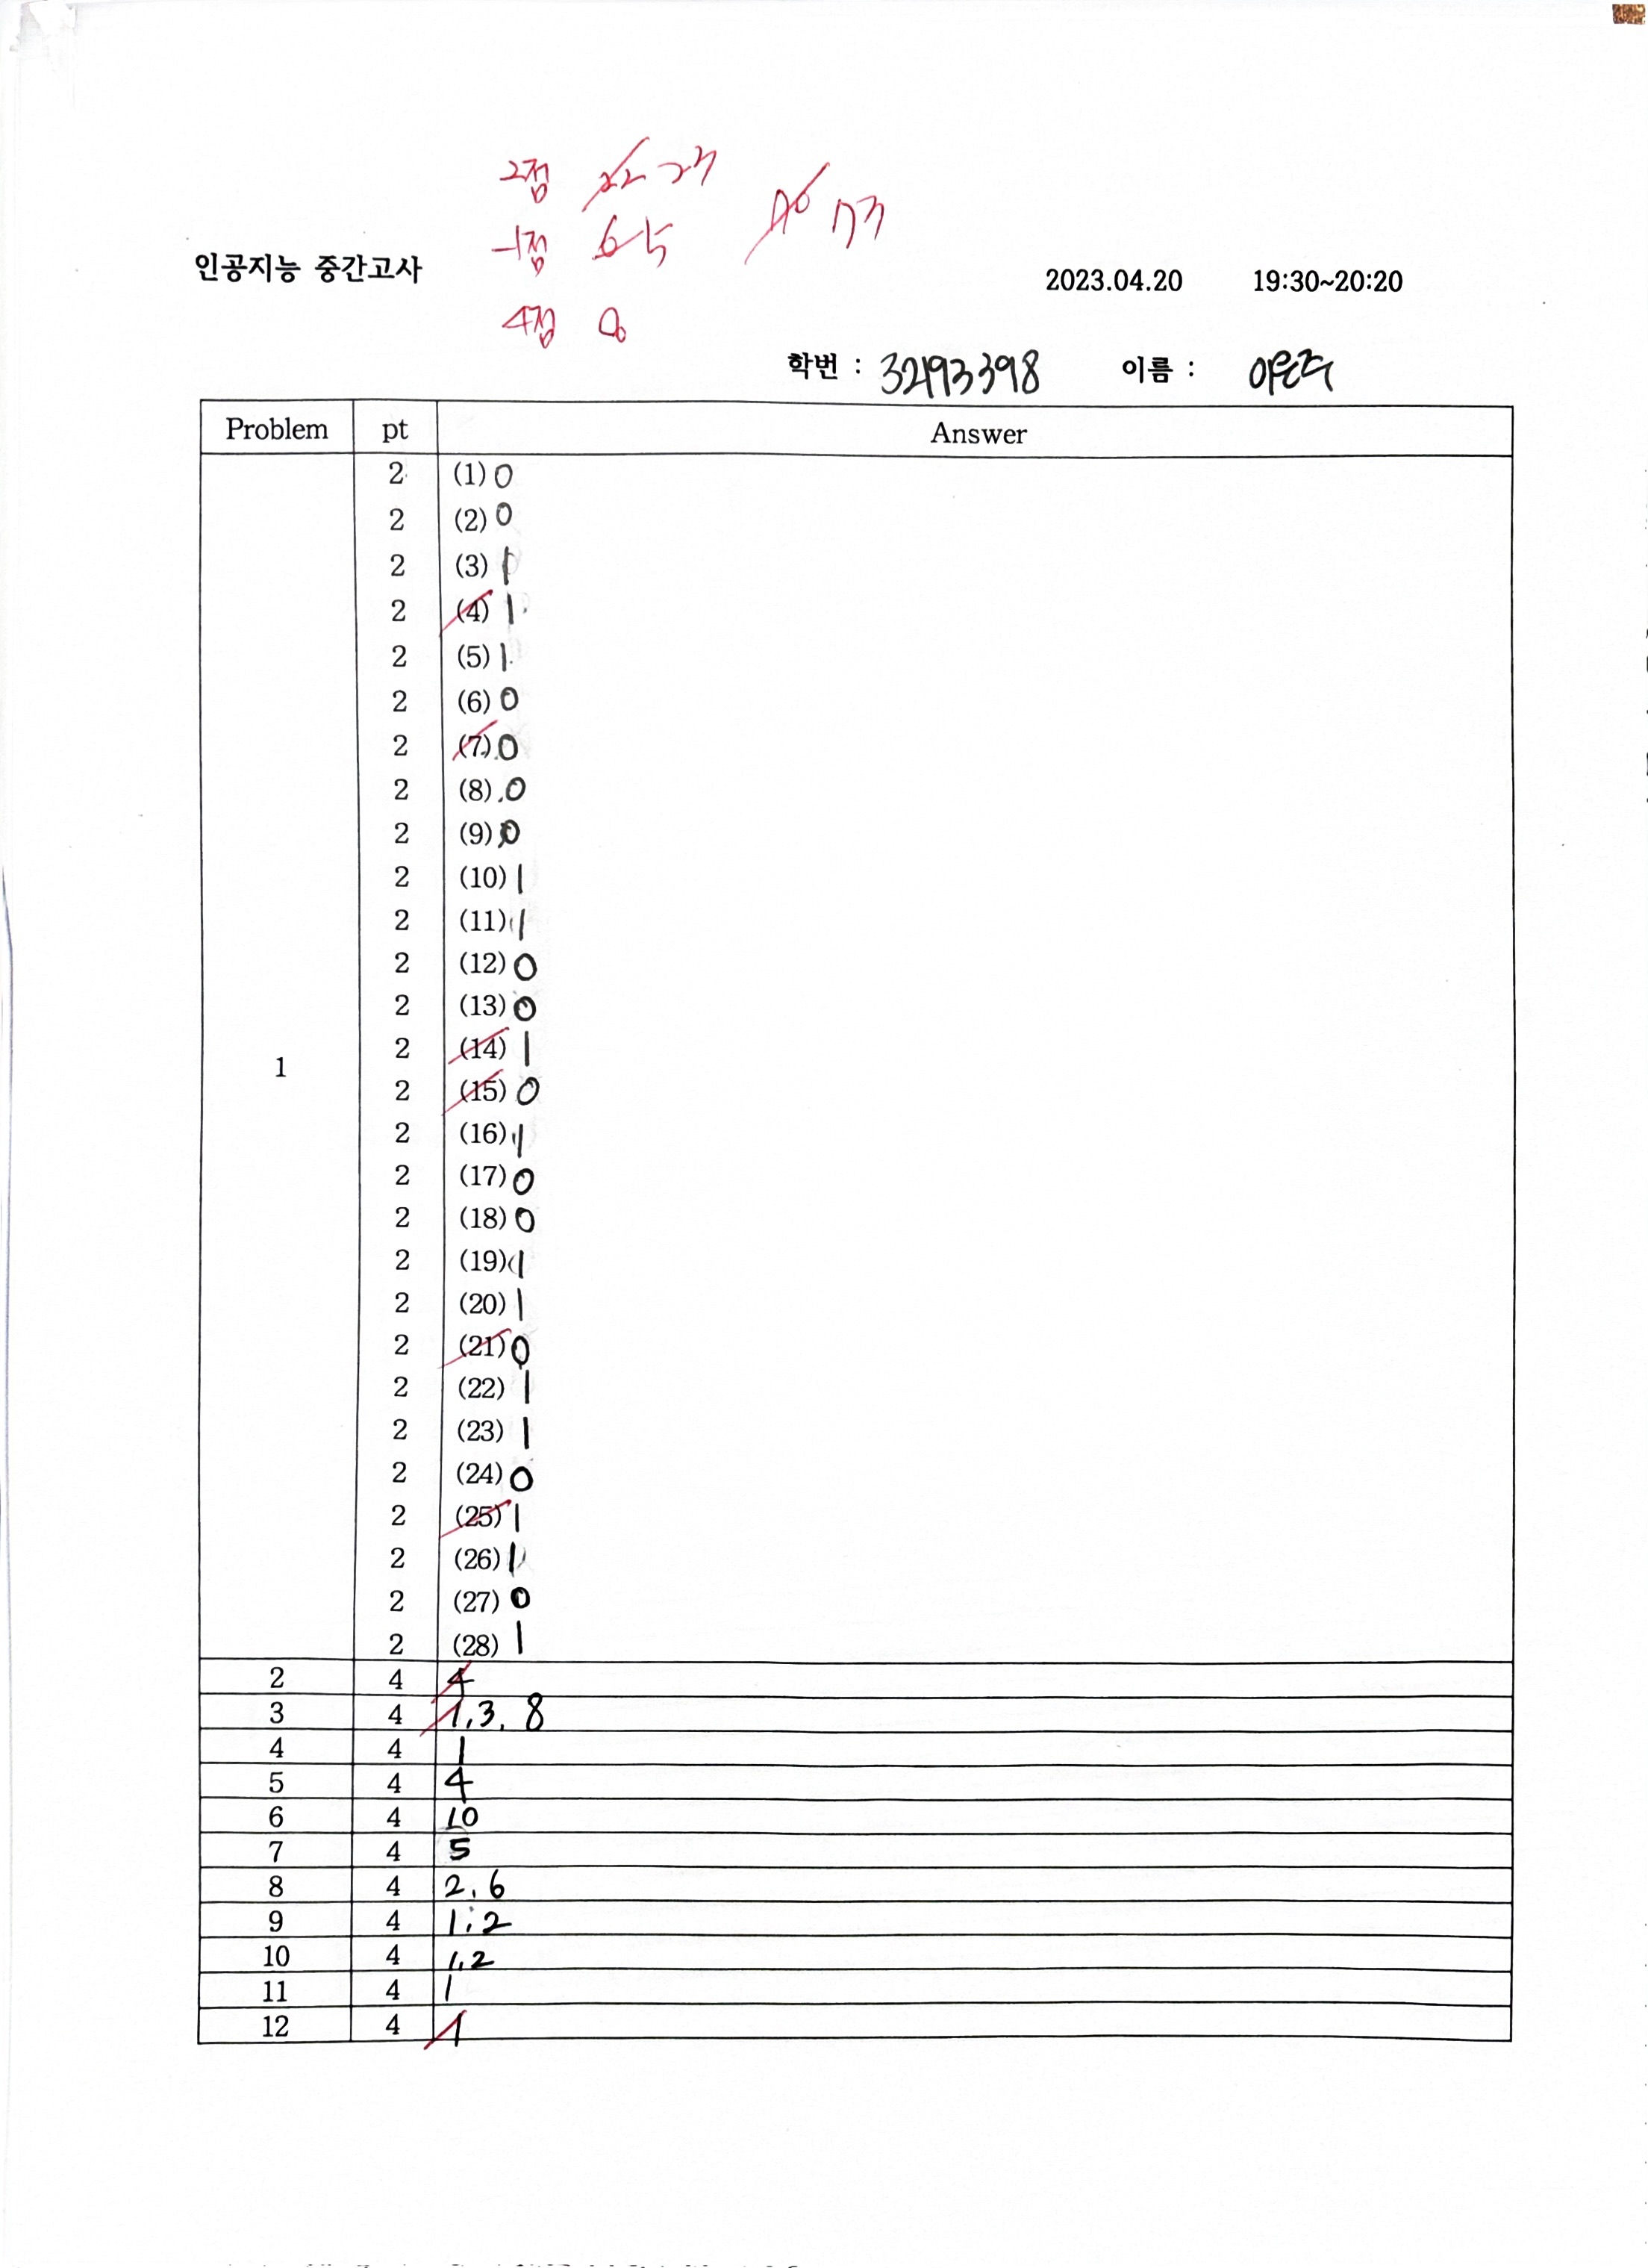 2점 22 23
-1점 6 5 76 73
4점 8
인공지능 중간고사
2023.04.20 19:30~20:20
학번 : 32193398 이름 : 이은주
Problem pt Answer
2 (1) 0
2 (2) 0
2 (3) 1
2 (4) 1
2 (5) 1
2 (6) 0
2 (7) 0
2 (8) 0
2 (9) 0
2 (10) 1
2 (11) 1
2 (12) 0
2 (13) 0
2 (14) 1
1 2 (15) 0
2 (16) 1
2 (17) 0
2 (18) 0
2 (19) 1
2 (20) 1
2 (21) 0
2 (22) 1
2 (23) 1
2 (24) 0
2 (25) 1
2 (26) 1
2 (27) 0
2 (28) 1
2 4 4
3 4 1, 3, 8
4 4 1
5 4 4
6 4 10
7 4 5
8 4 2, 6
9 4 1, 2
10 4 1, 2
11 4 1
12 4 1